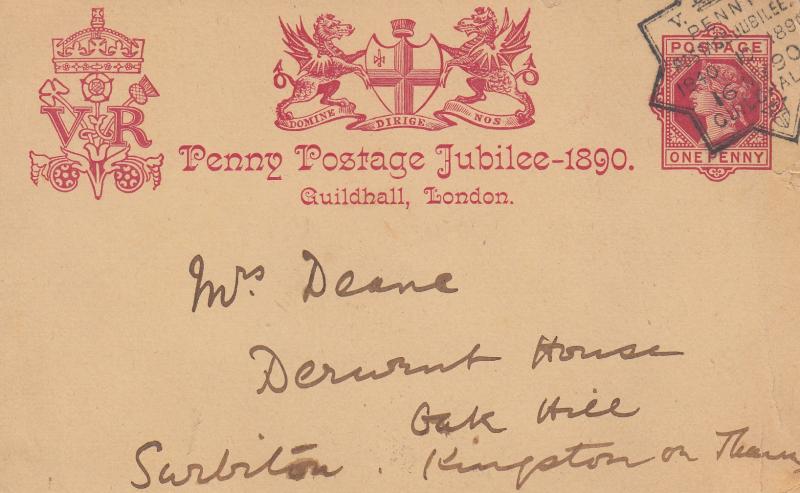 V R
DOMINE DIRIGE NOS
Penny Postage Jubilee-1890.
Guildhall, London.
V.R.
PENNY
JUBILEE.
1840
1890
16
90
GUILDHALL
POSTAGE
ONE PENNY
Mrs Deane
Derwent House
Oak Hill
Surbiton. Kingston on Thames